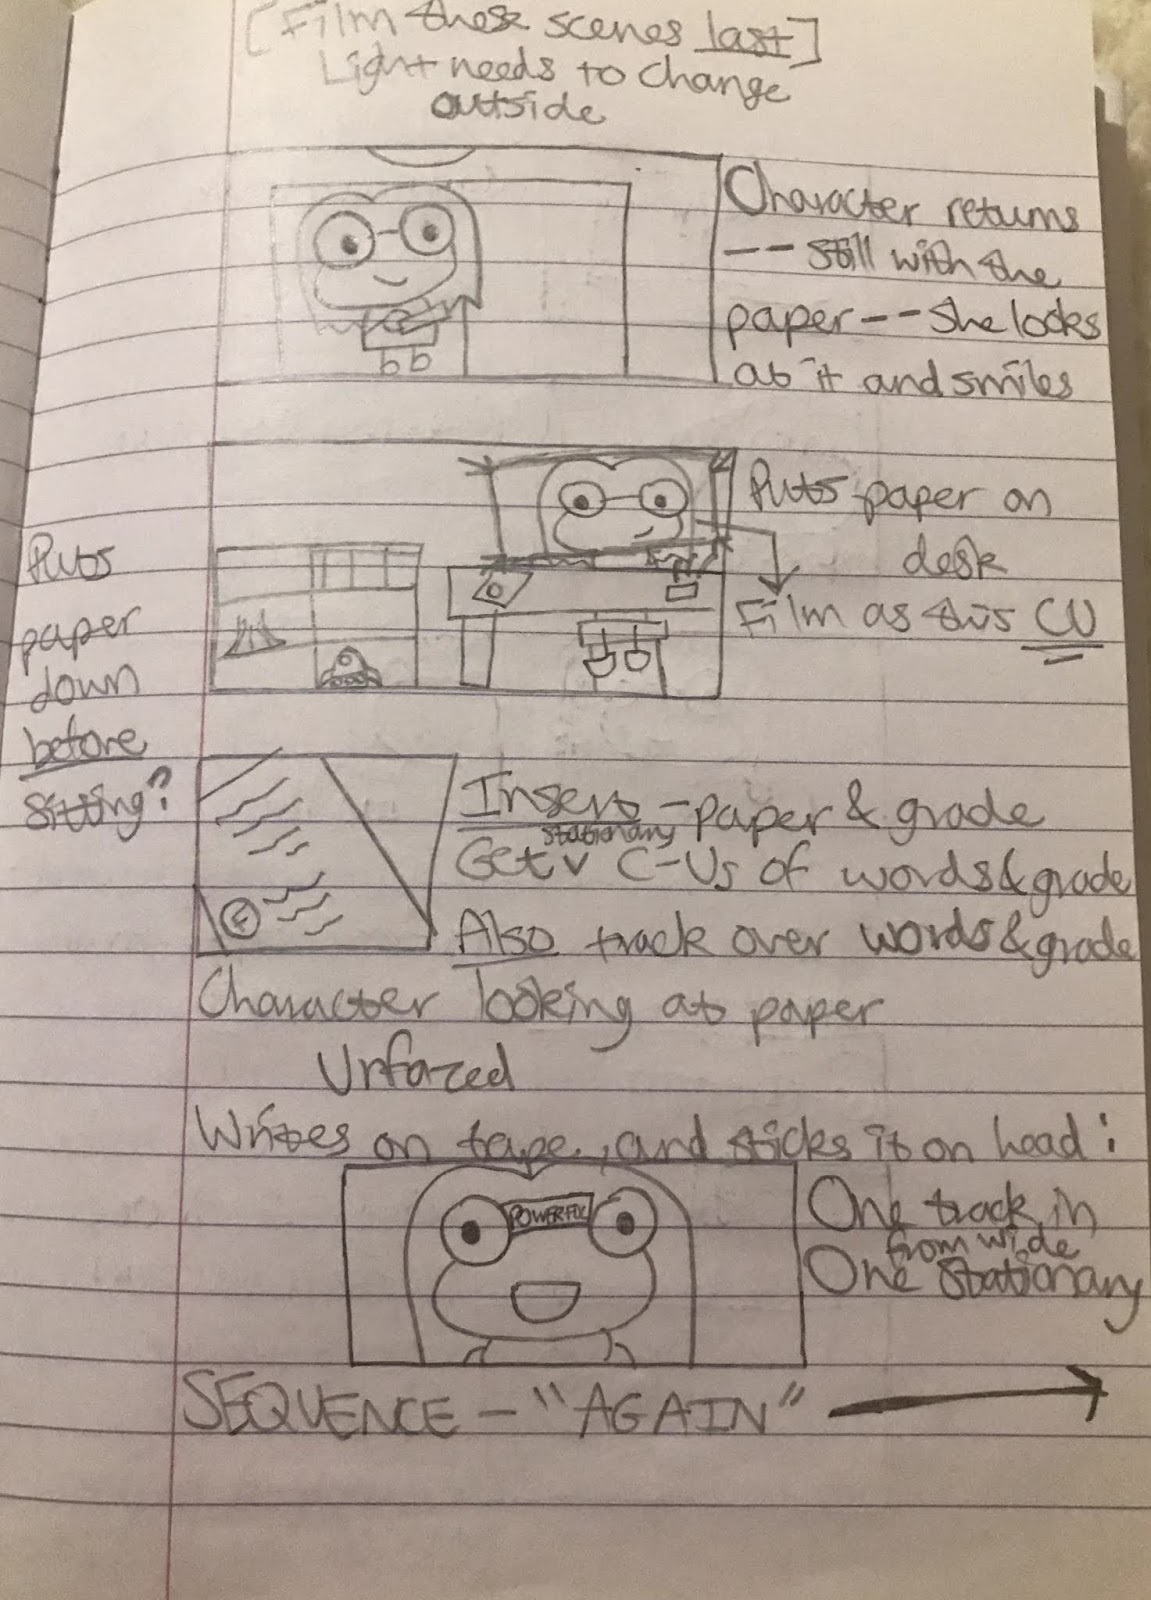 [Film these scenes last]
Light needs to change
outside
Character returns
-- still with the
paper -- she looks
at it and smiles
Puts paper on
desk
Film as this CU
Puts
paper
down
before
sitting?
Insert - paper & grade
stationary
Get v C-Us of words & grade
Also track over words & grade
F
Character looking at paper
Unfazed
Writes on tape, and sticks it on head:
One track in
from wide
One stationary
SEQUENCE - "AGAIN"